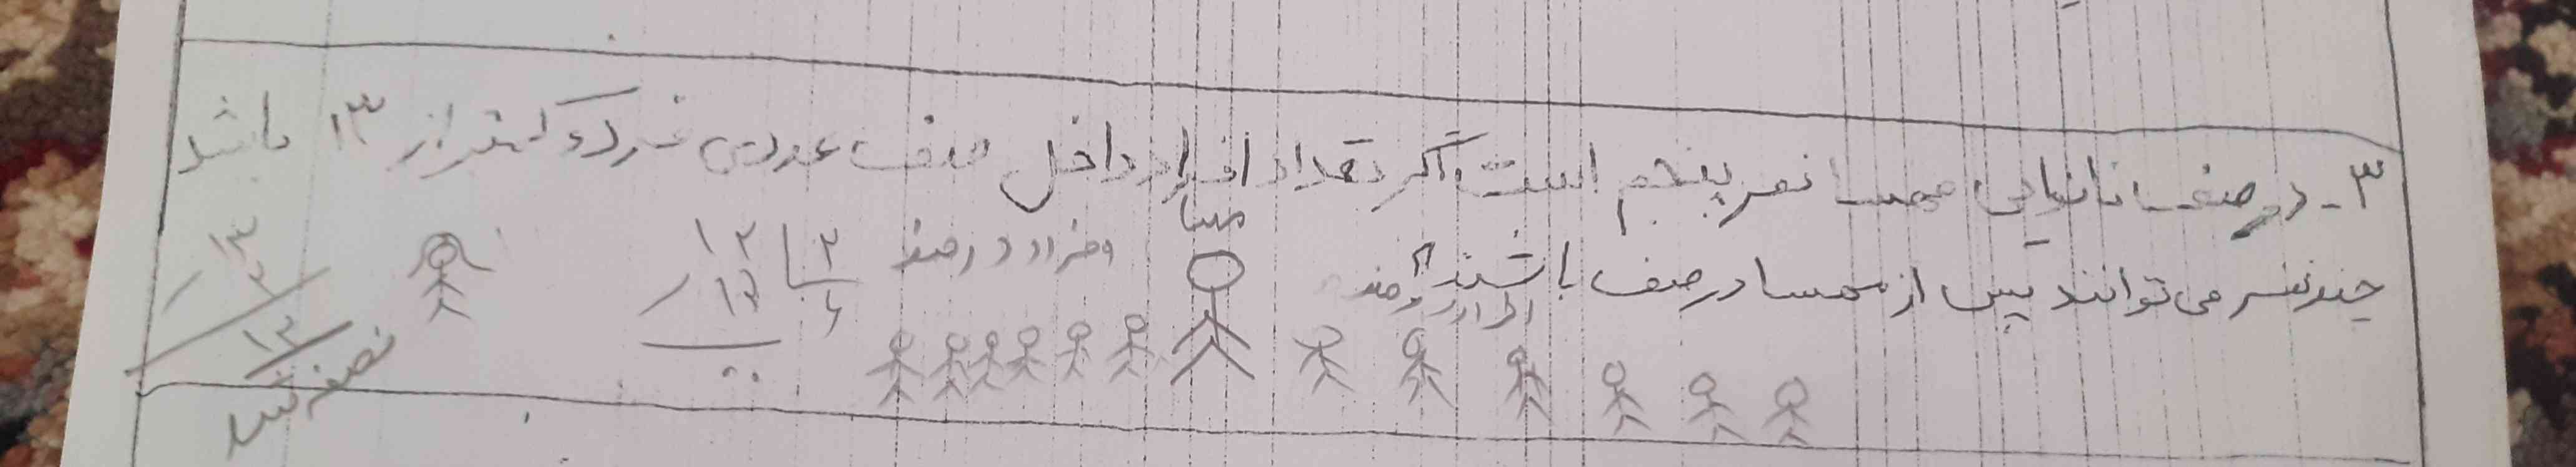 ۳- در صف نانوایی مهسا نفر پنجم است اگر تعداد افراد داخل صف عددی فرد و کمتر از ۱۳ باشد
چند نفر می توانند پس از مهسا در صف باشند؟
مهسا
افراد در صف
۱۲ ۲
۱۲ ۶
۰۰
افراد در صف
۱۳
۱۳
نصف شد